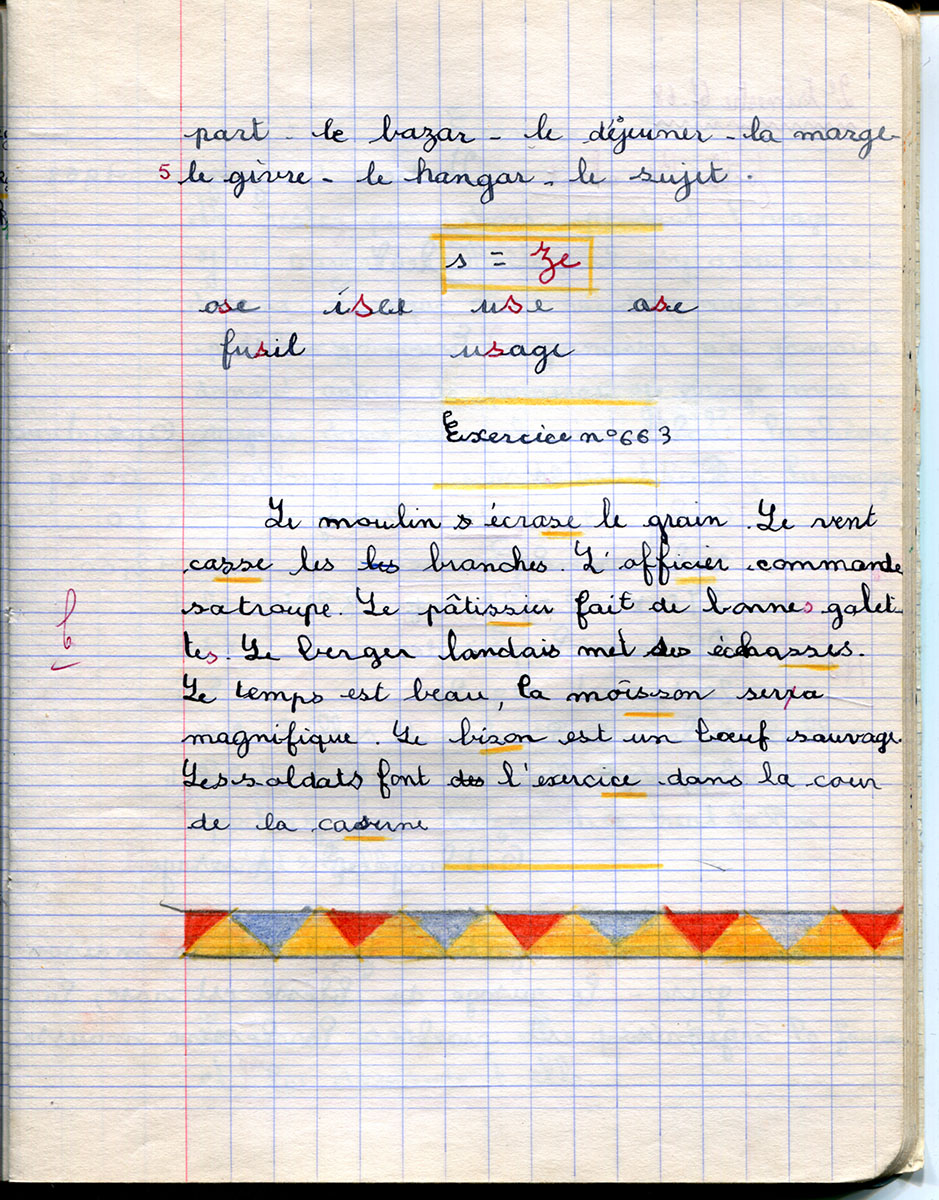 part - le bazar - le déjeuner - la marge-
5 le givre - le hangar - le sujet.
s = ze
ose iser use ase
fusil usage
Exercice n° 663
Le moulin écrase le grain. Le vent
casse les branches. L'officier commande
sa troupe. Le pâtissier fait de bonnes galet-
tes. Le berger landais met des échasses.
Le temps est beau, la moisson sera
magnifique. Le bizon est un bœuf sauvage.
Les soldats font l'exercice dans la cour
de la caserne